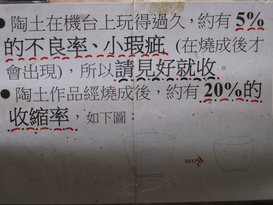 ● 陶土在機台上玩得過久，約有 5%
的不良率、小瑕疵（在燒成後才
會出現)，所以請見好就收。
● 陶土作品經燒成後，約有 20%的
收縮率，如下圖：